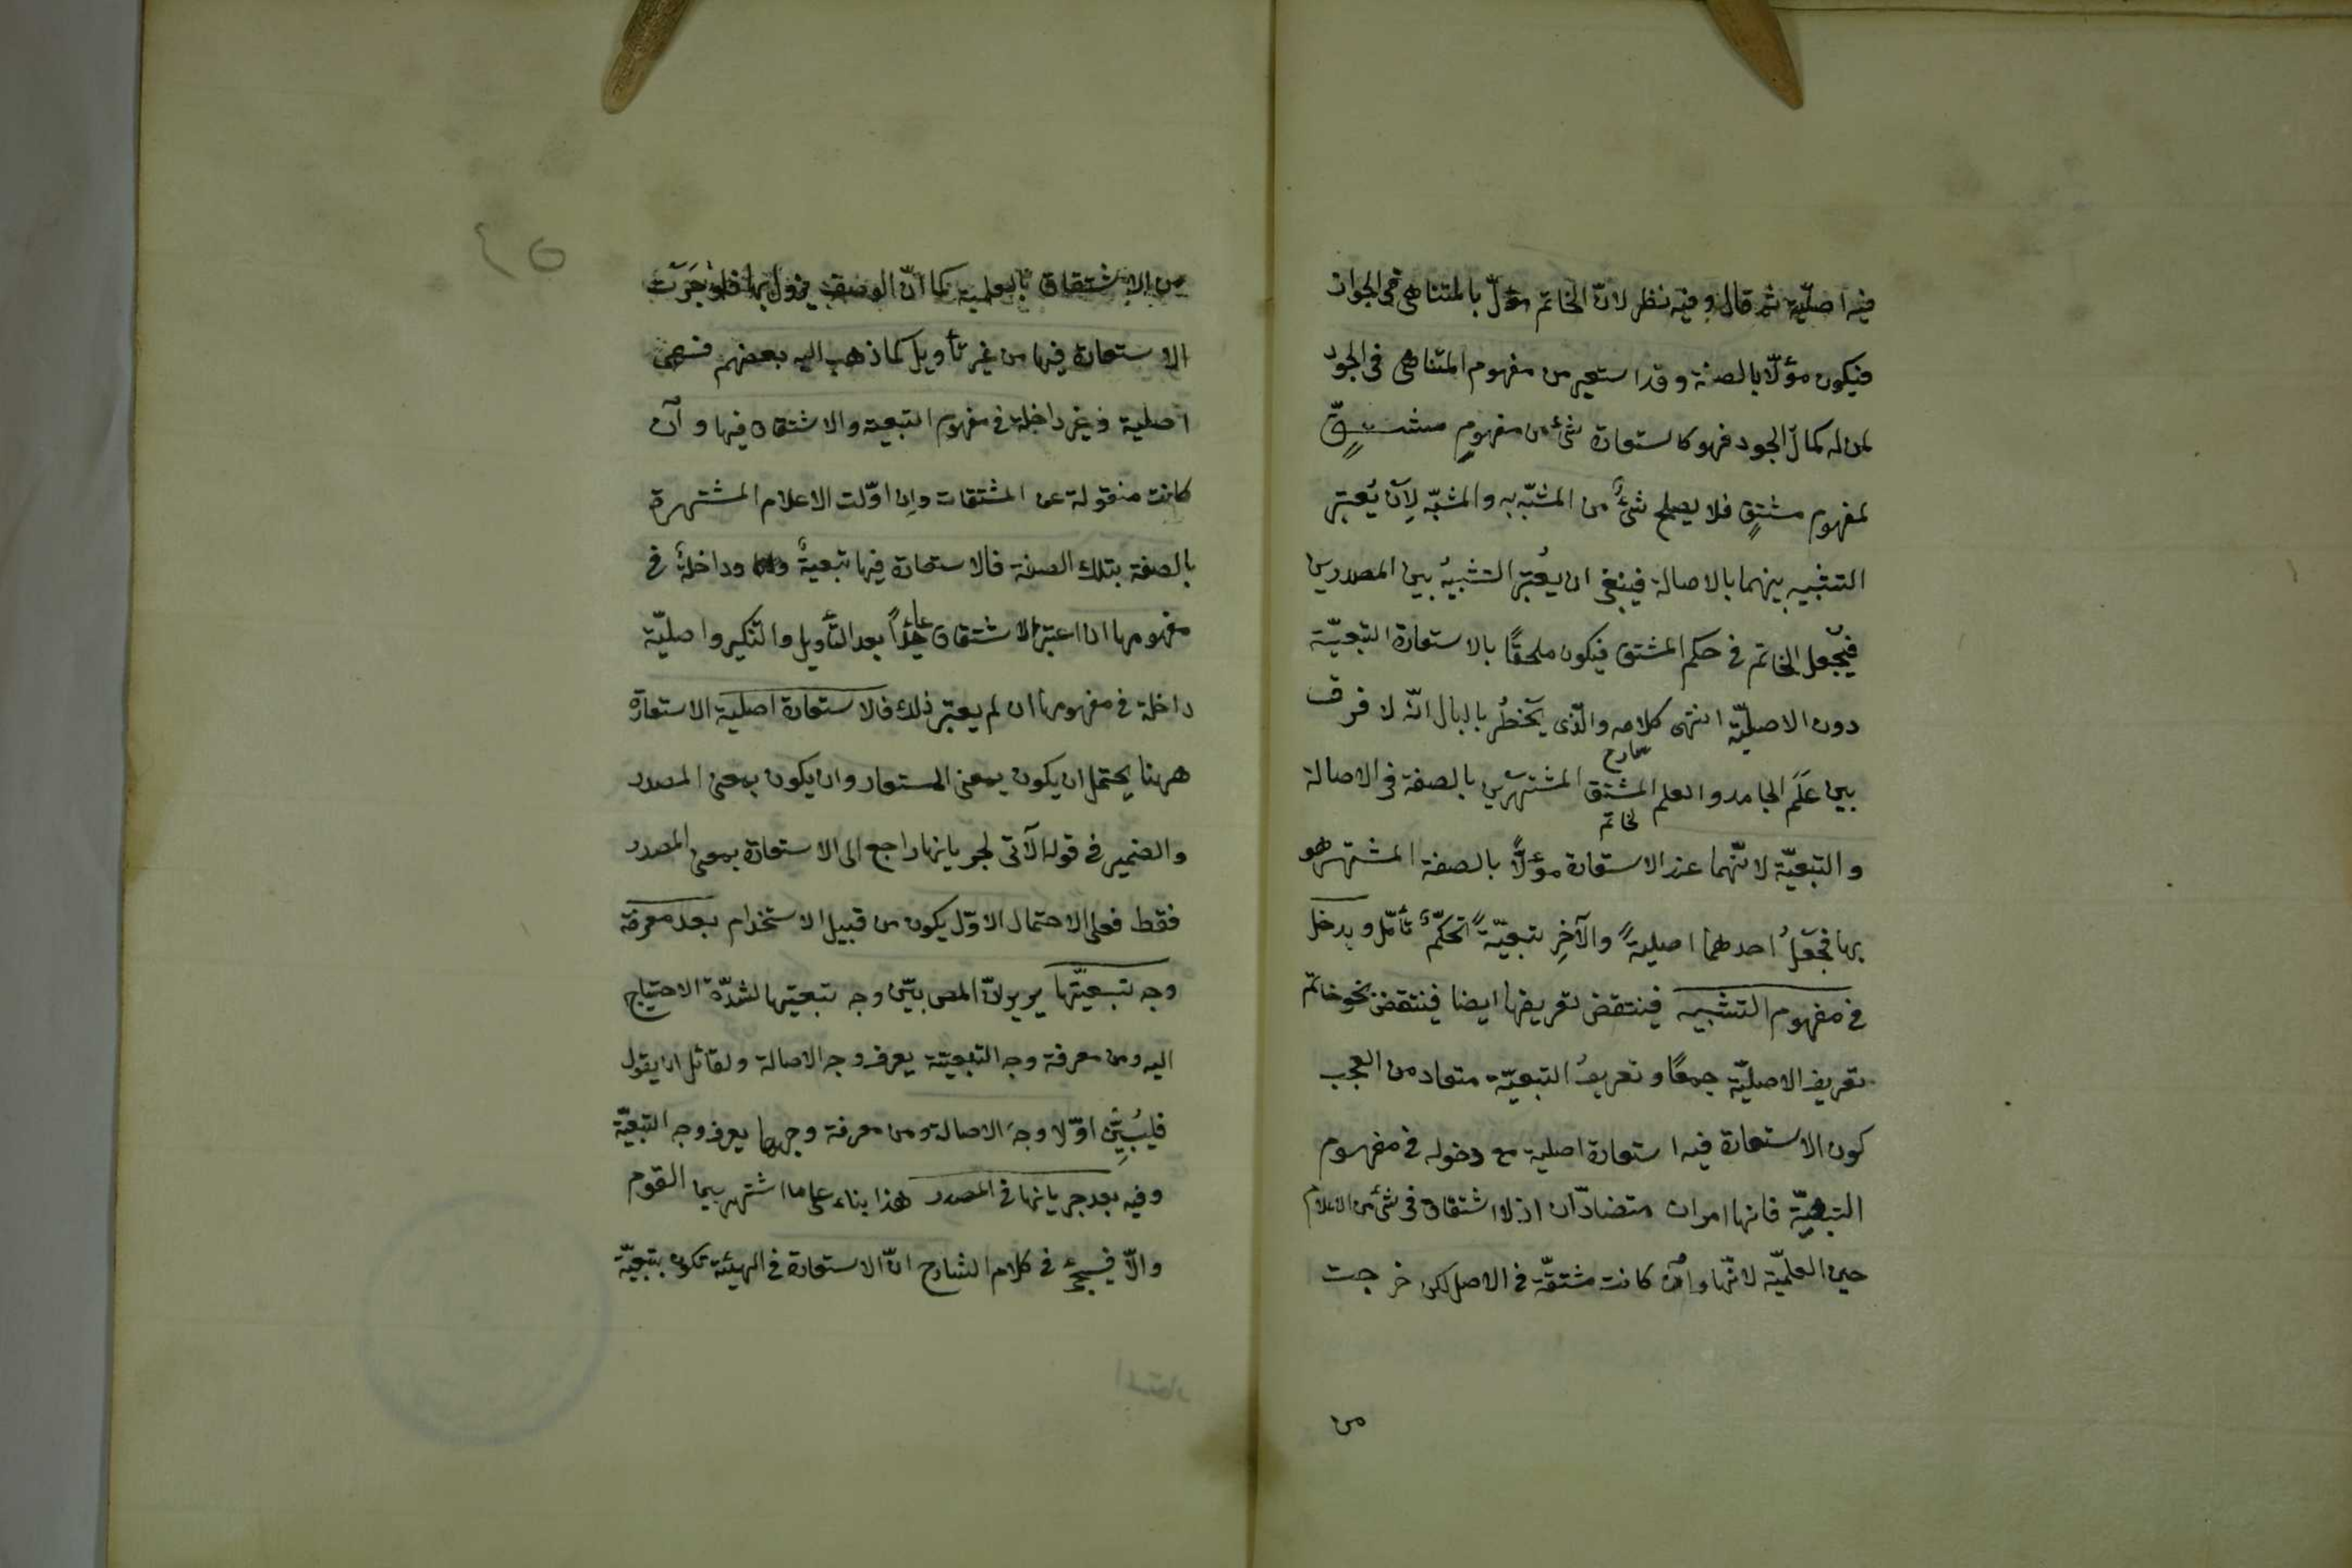 فيه اصليّة ثم قال وفيه نظر لانّ الخاتم مؤلّ بالمتناهى فى الجواد
فيكون مؤلّا بالصفة وقد استعير من مفهوم المتناهى فى الجود
لمن له كمال الجود فهو كاستعارة شئ من مفهومٍ مشتقٍّ
لمفهوم مشتقٍ فلا يصلح شئٌ من المشبّه به والمشبّه لِاَن يُعتبر
التشبيه بينهما بالاصالة فينبغى ان يُعتبر التشبيهُ بين المصدرين
فيُجعل الخاتم فى حكم المشتق فيكون ملحقًا بالاستعارة التبعيّة
دون الاصليّة انتهى كلامه والّذى يَخطُر بالبال انّه لا فرق
بين عَلَم الجامد والعلم المشتق المشتهرين بالصفة فى الاصالة
لخاتم
والتبعيّة لانّهما عند الاستعارة مؤلّاً بالصفة المشتهر هو
بها فجَعْلُ احدهما اصليةً والآخرِ تبعيّةً تحكّمٌ تأمّل ويدخل
فى مفهوم التشبيه فينتقض تعريفها ايضا فينتقض بنحو خاتم
تعريف الاصليّة جمعًا وتعريفُ التبعيّة متعاد من العجب
كون الاستعارة فيه استعارة اصلية مع دخوله فى مفهوم
التبعيّة فانها امران متضادّان اذ لا اشتقاق فى شئ من الاعلام
حين العلميّة لانّها وان كانت مشتقّة فى الاصل لكن خرجت
من
من الاشتقاق بالعلمية كما انّ الوصفية يزول بها فلو جَرَت
الاستعارة فيها من غير تأويل كما ذهب اليه بعضهم فهى
اصلية وغير داخلة فى مفهوم التبعية والاشتقاق فيها وان
كانت منقولة عن المشتقات وان اوّلت الاعلام المشتهرة
بالصفة بتلك الصفة فالاستعارة فيها تبعيةٌ وداخلةٌ فى
مفهومها ان اعتبر الاشتقاق بعد التأويل والتنكير واصليّة
داخلة فى مفهومها ان لم يعتبر ذلك فالاستعارة اصلية الاستعارة
ههنا يحتمل ان يكون بمعنى المستعار وان يكون بمعنى المصدر
والضمير فى قوله الآتى لجريانها راجع الى الاستعارة بمعنى المصدر
فقط فعلى الاحتمال الاوّل يكون من قبيل الاستخدام بعد معرفة
وجه تبعيّتها يريد انّ المص بيّن وجه تبعيّتها لشدّة الاحتياج
اليه ومن معرفة وجه التبعيّة يعرف وجه الاصالة ولقائل ان يقول
فليُبيِّن اوّلا وجهَ الاصالة ومن معرفة وجهها يعرف وجه التبعيّة
وفيه بعد جريانها فى المصدر هذا بناء على ما اشتهر بين القوم
والّا فيجئ فى كلام الشارح انّ الاستعارة فى الهيئة تكون تبعيّة